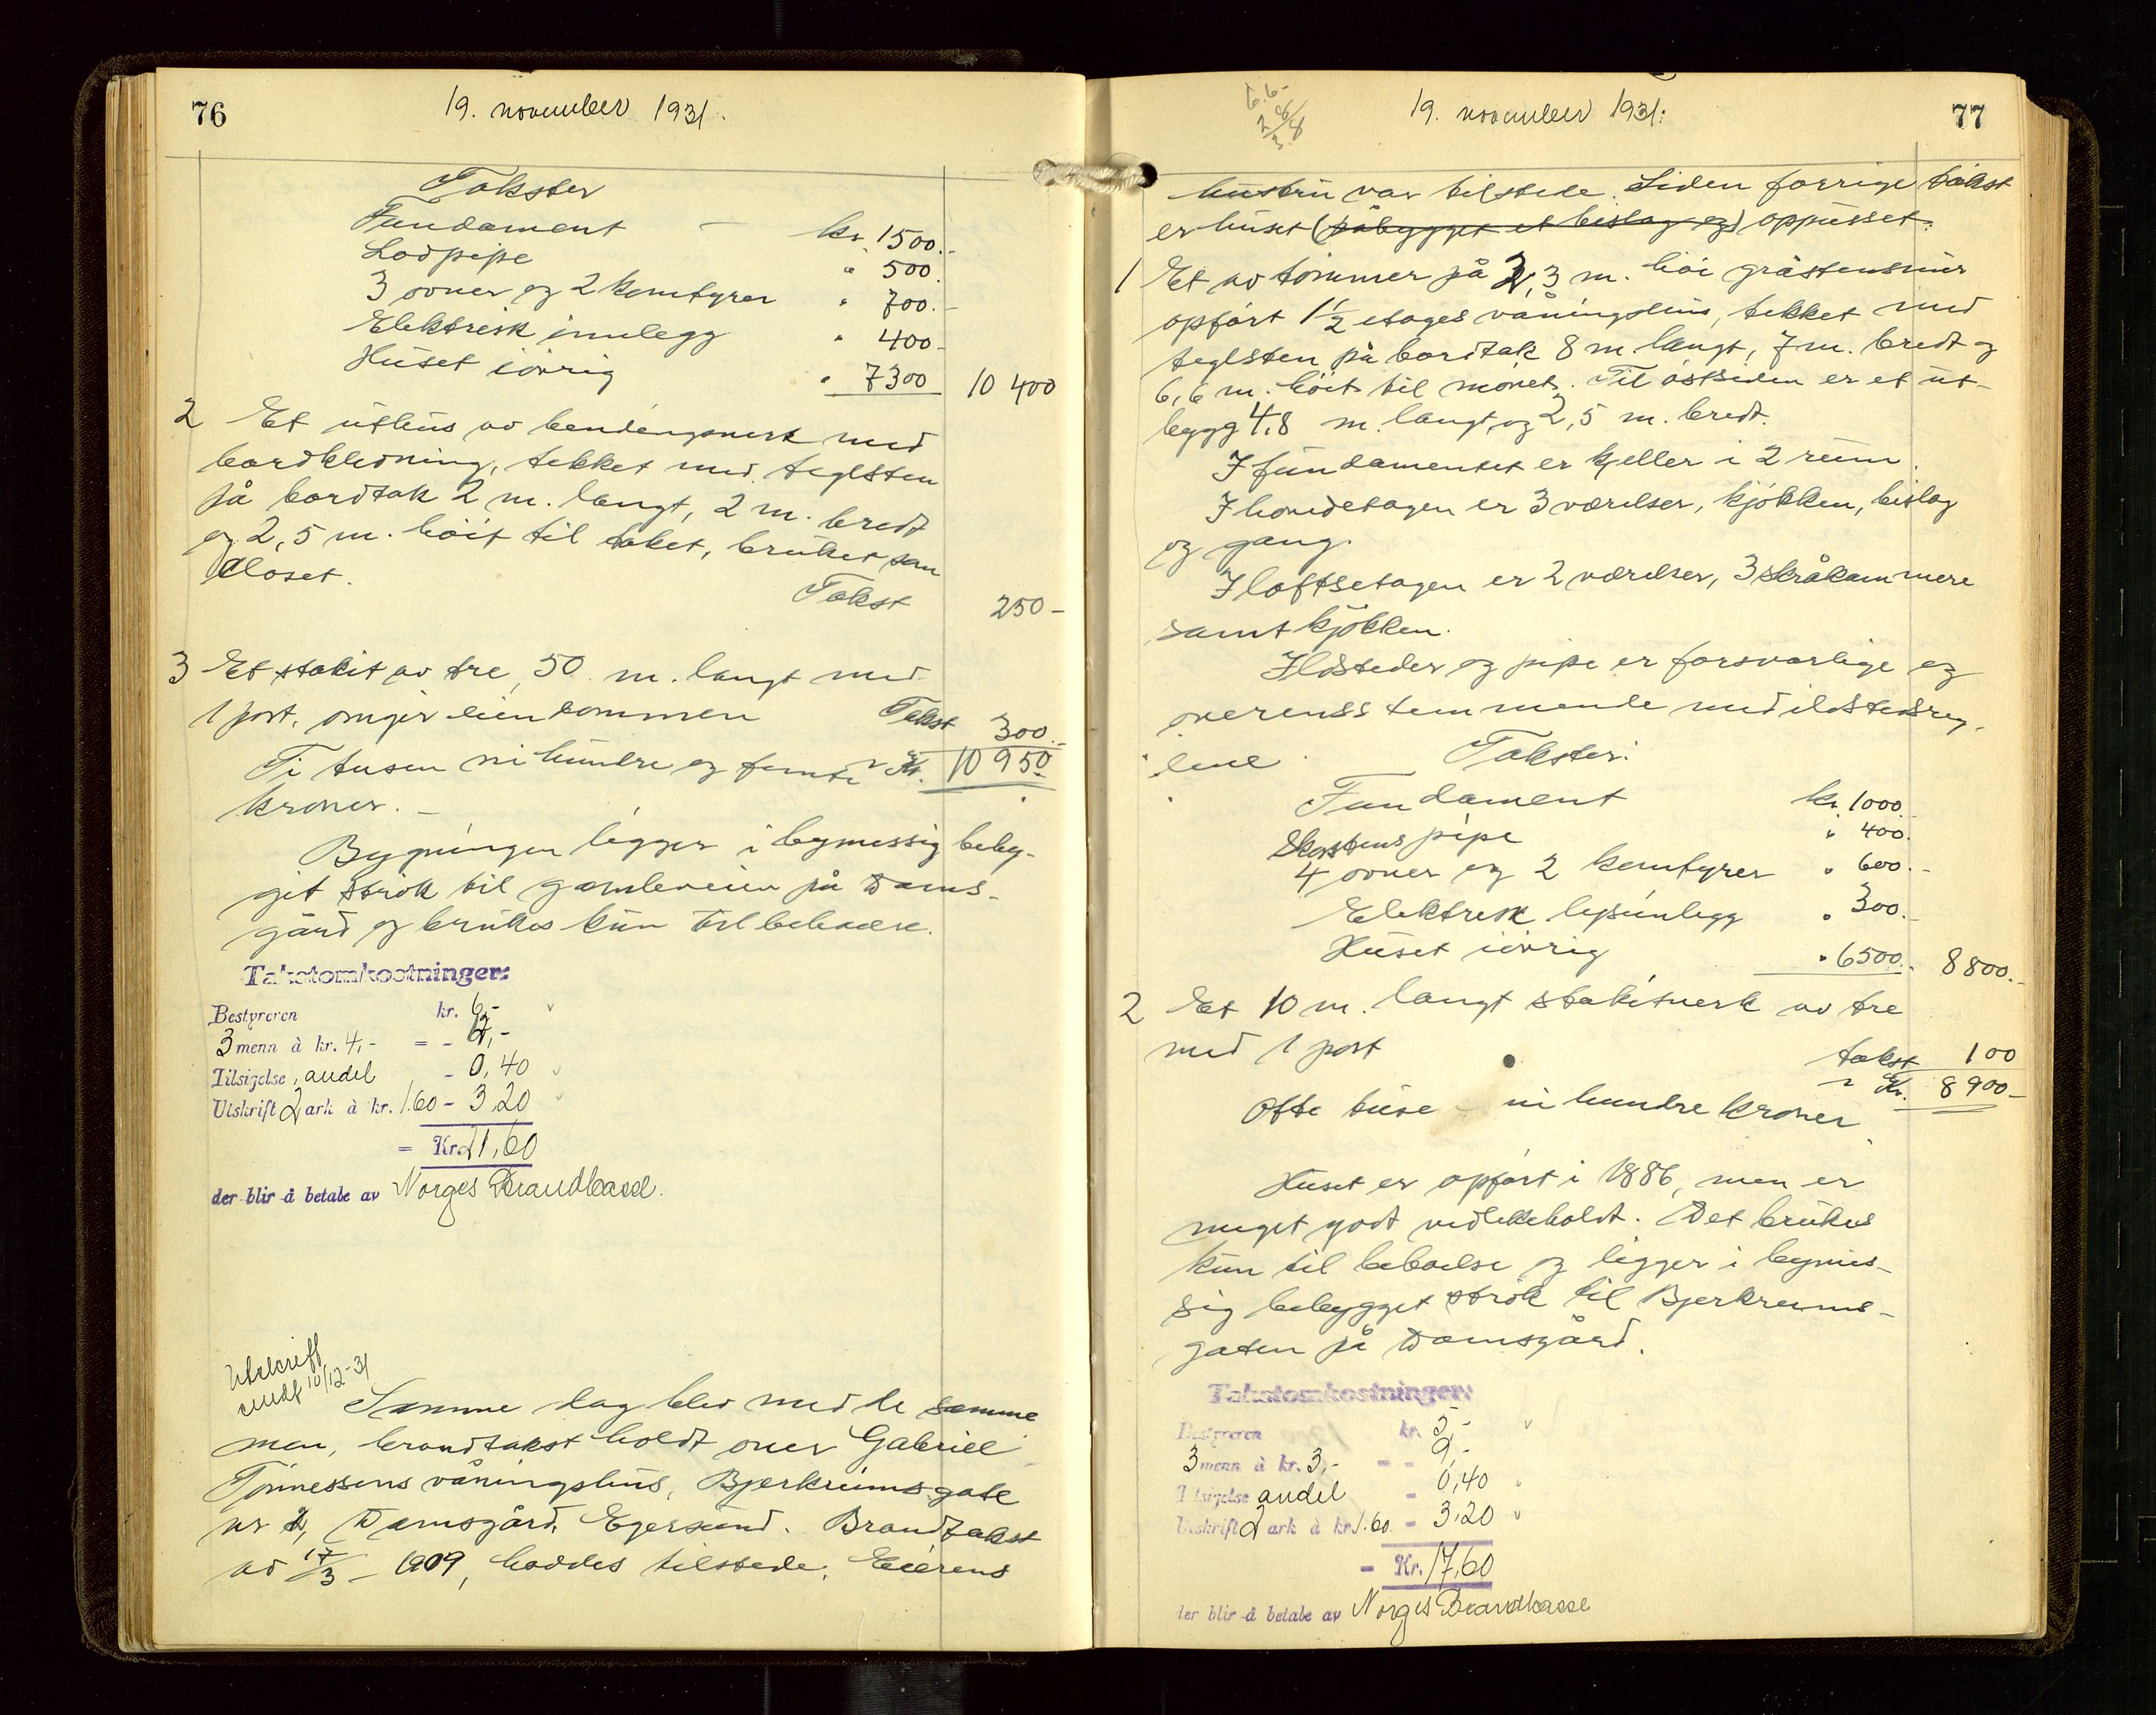 76
19. november 1931.
Takster
Fundament – kr. 1500.-
Lodpipe " 500.
3 ovner og 2 komfyrer " 700.-
Elektrisk innlegg " 400-
Huset iövrig " 7300 10 400
2 Et uthus av bendingsverk med
bordkledning, tekket med teglsten
på bordtak 2 m. langt, 2 m. bredt
og 2,5 m. höit til taket, bruket som
closet.
Takst 250-
3 Et stakit av tre, 50 m. langt med
1 port, omgir eiendommen Takst 300.-
Ti tusen ni hundre og femti Kr. 10 950.
kroner. –
Bygningen ligger i bymessig beby-
get strök til gamleveien på Dams-
gård og brukes kun til beboelse.
Takstomkostninger:
Bestyreren kr. 6,-
3 menn à kr. 4,- = - 12,-
Tilsigelse, andel - 0,40
Utskrift 2 ark à kr. 1.60 - 3,20
= Kr. 21,60
der blir å betale av Norges Brandkasse.
Utskrift
sendt 10/12-31
Samme dag blev med de samme
men, brandtakst holdt over Gabriel
Tönnessens våningshus, Bjerkreimsgate
nr 2, Damsgård, Egersund. Brandtakst
av 17/3 – 1909, haddes tilstede. Eierens
6.6-
19. november 1931:
77
hustru var tilstede. Siden forrige takst
er huset (påbygget et bislag og) oppusset.
1 Et av tömmer på 2,3 m. höi gråstensmur
opfört 1½ etages våningshus, tekket med
teglsten på bordtak 8 m. langt, 7 m. bredt og
6,6 m. höit til mönet. Til östsiden er et ut-
bygg 4,8 m. langt, og 2,5 m. bredt.
I fundamentet er kjeller i 2 rum.
I hovedetagen er 3 værelser, kjökken, bislag
og gang.
I loftsetagen er 2 værelser, 3 skråkammere
samt kjökken.
Ildsteder og pipe er forsvarlige og
overensstemmende med ildstedsreg-
lene. Takster:
Fundament kr. 1000.-
Skorstenspipe " 400.
4 ovner og 2 komfyrer " 600.-
Elektrisk lysinlegg " 300.-
Huset iövrig " 6500.- 8800.-
2 Et 10 m. langt stakitverk av tre
med 1 port takst 100
Kr. 8900-
Otte tuse – ni hundre kroner.
Huset er opfört i 1886, men er
meget godt vedlikeholdt. Det brukes
kun til beboelse og ligger i bymes-
sig bebygget strök til Bjerkreims-
gaten på Damsgård.
Takstomkostninger:
Bestyreren kr. 5,-
3 menn à kr. 3,- = - 9,-
Tilsigelse andel - 0,40
Utskrift 2 ark à kr. 1.60 - 3,20
= Kr. 17,60
der blir å betale av Norges Brandkasse